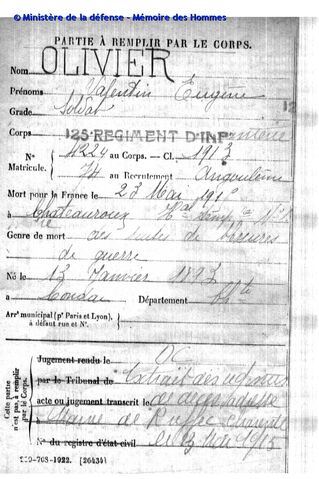 © Ministère de la défense - Mémoire des Hommes
PARTIE À REMPLIR PAR LE CORPS.
Nom OLIVIER
Prénoms Valentin Eugène
Grade Soldat
Corps 125 REGIMENT D'INFanterie
N° 4224 au Corps. — Cl. 1913
Matricule. 74 au Recrutement Angoulême
Mort pour la France le 23 Mai 191
à Châteauroux
Genre de mort des suites de blessures
de guerre
Né le 13 Janvier 1893
à Condac Département Ch^te
Arr^t municipal (p^r Paris et Lyon),
à défaut rue et N°.
Cette partie
n'est pas à remplir
par le Corps.
Jugement rendu le
par le Tribunal de Extrait des
acte ou jugement transcrit le de décès
à Mairie de Ruffec Charente
N° du registre d'état civil 1915
708-1922. [26434]